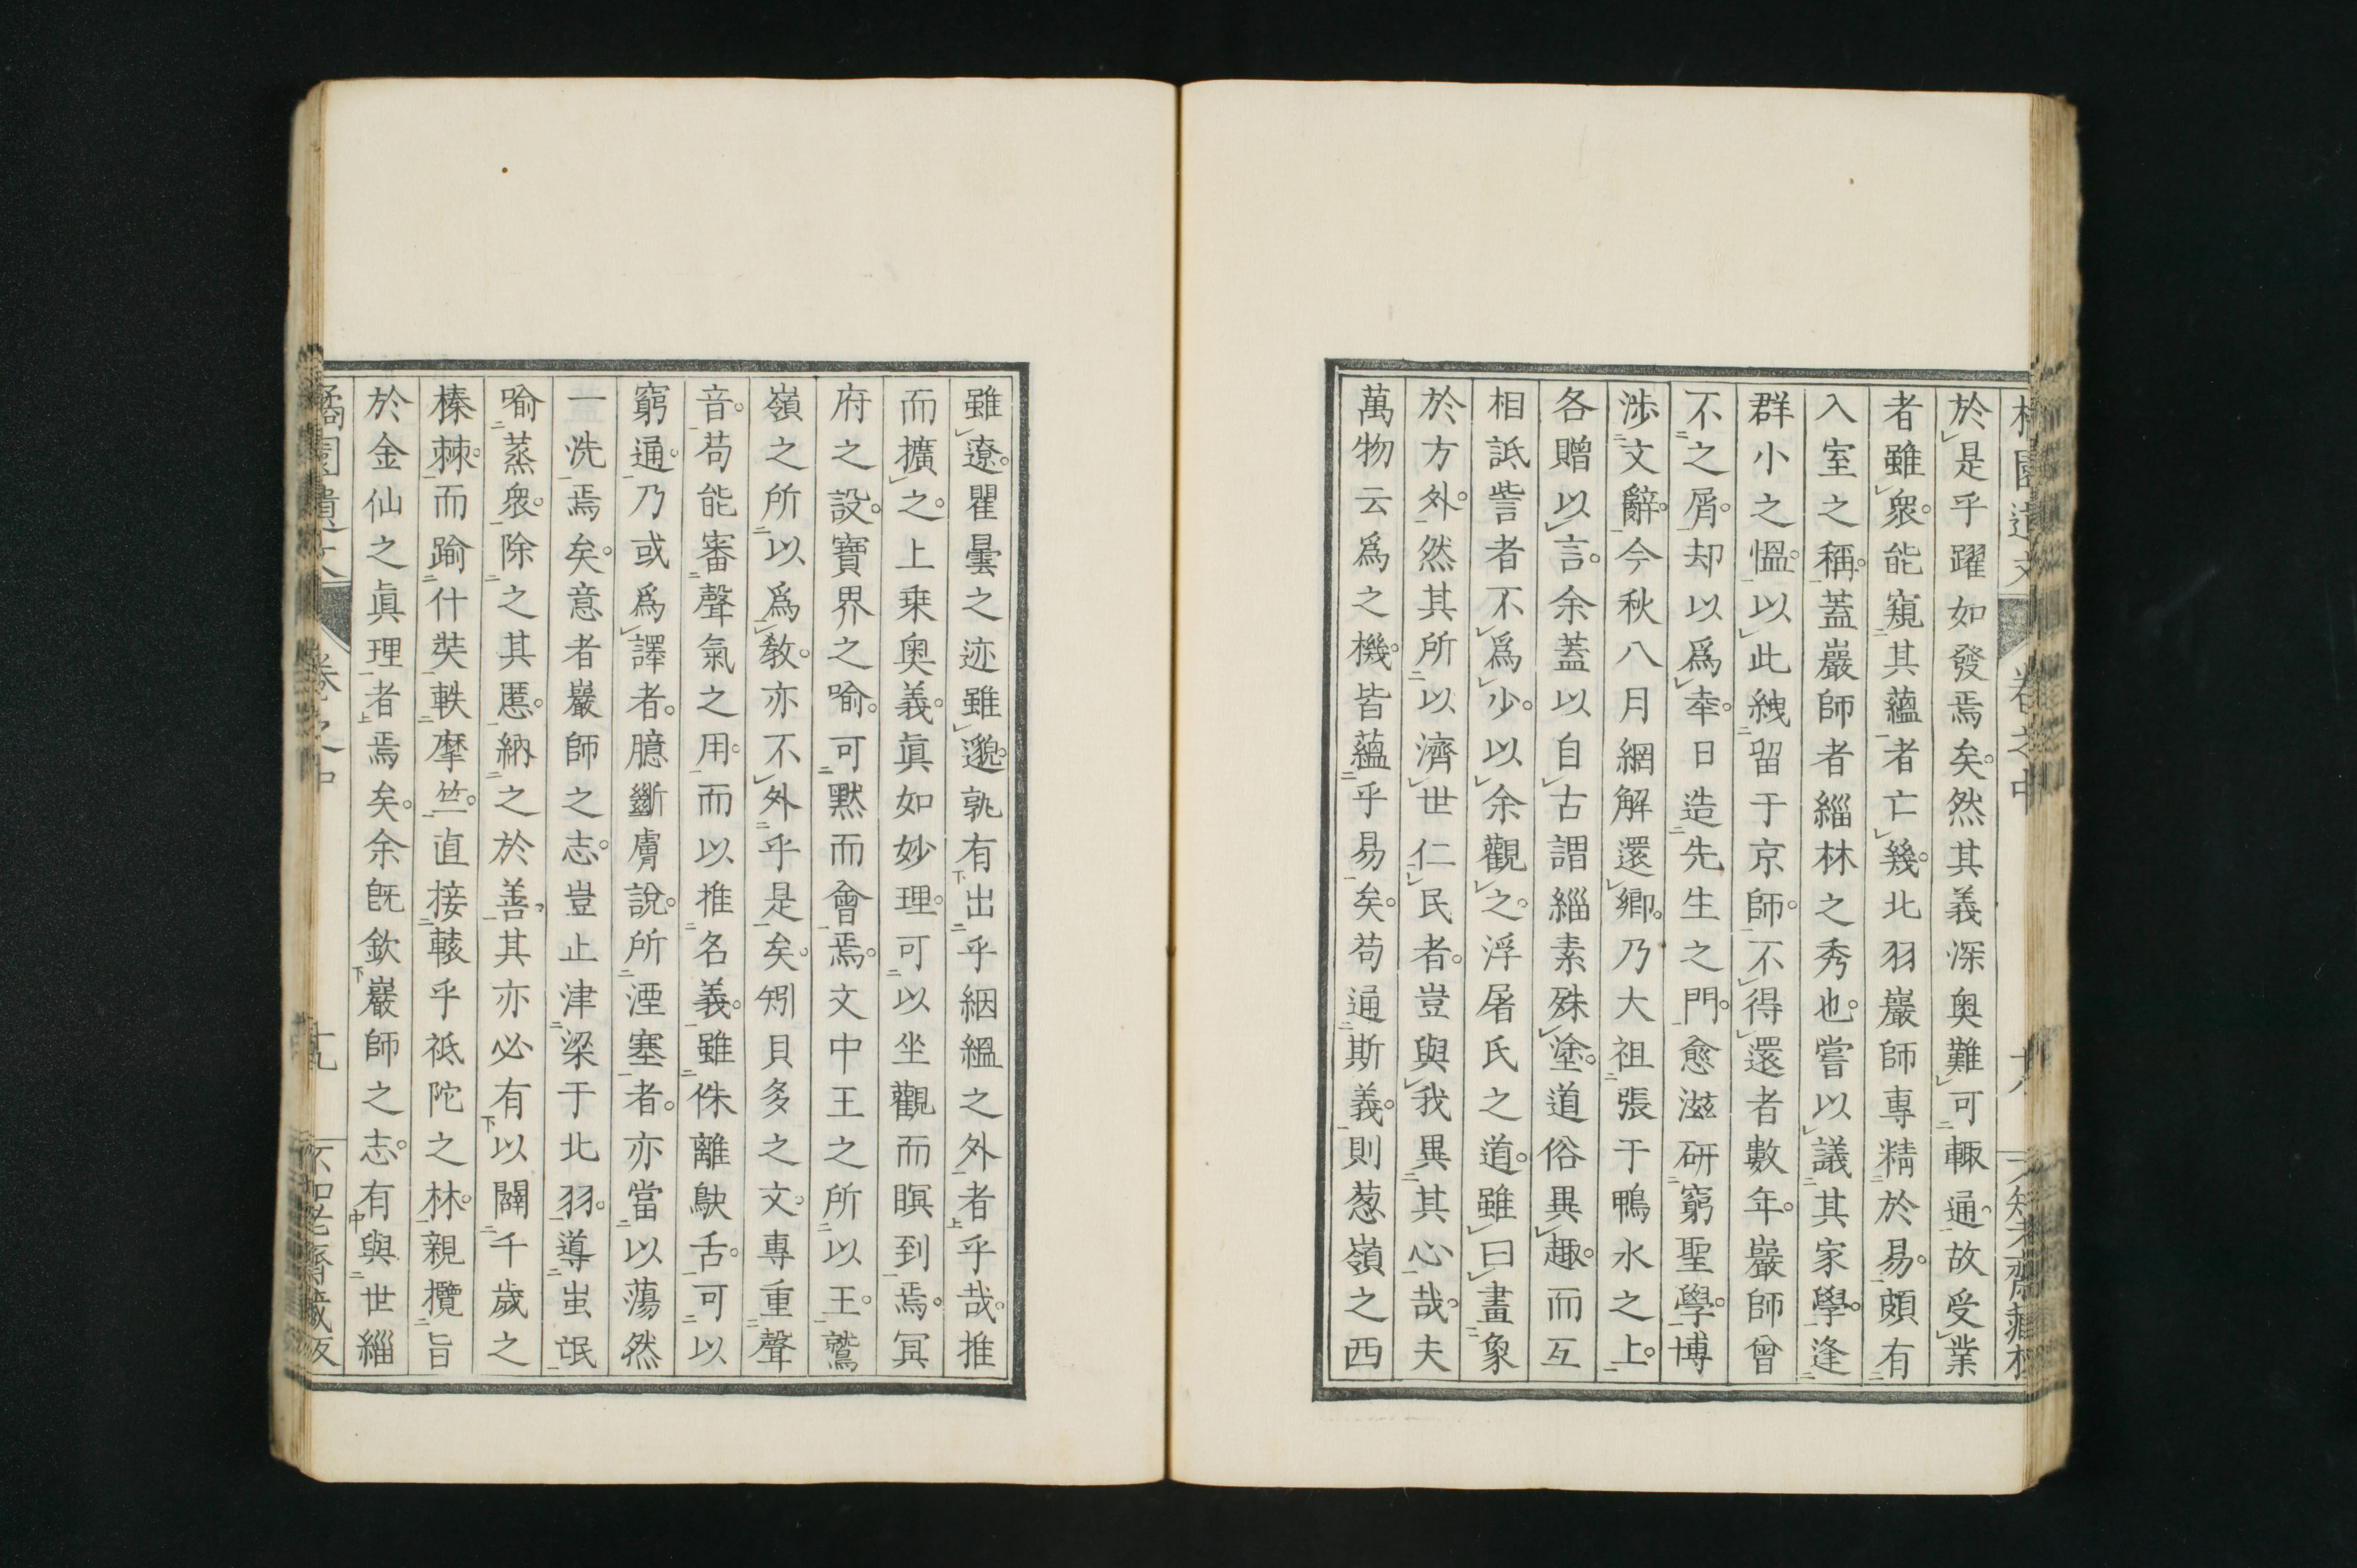 橘園遺文 卷之中 十八 不知老齋藏板
於是乎躍如發焉矣。然其義深奧難可輙通。故受業
者雖衆。能窺其蘊者亡幾。北羽巖師專精於易。頗有
入室之稱。蓋巖師者緇林之秀也。嘗以議其家學。逢
群小之慍。以此絏留于京師。不得還者數年。巖師曾
不之屑。却以爲幸。日造先生之門。愈滋研窮聖學。博
涉文辭。今秋八月網解還卿。乃大祖張于鴨水之上。
各贈以言。余蓋以自古謂緇素殊塗。道俗異趣。而互
相詆訾者不爲少。以余觀之。浮屠氏之道。雖曰畫象
於方外。然其所以濟世仁民者。豈與我異其心哉。夫
萬物云爲之機。皆蘊乎易矣。苟通斯義。則葱嶺之西
雖遼。瞿曇之迹雖邈。孰有出乎絪縕之外者乎哉。推
而擴之。上乗奧義。眞如妙理。可以坐觀而瞑到焉。冥
府之設。寶界之喻。可默而會焉。文中王之所以王。鷲
嶺之所以爲教。亦不外乎是矣。矧貝多之文。專重聲
音。苟能審聲氣之用。而以推名義。雖侏離鴃舌。可以
窮通。乃或爲譯者。臆斷膚說。所湮塞者。亦當以蕩然
一洗焉矣。意者巖師之志。豈止津梁于北羽。導蚩氓
喻蒸衆。除之其慝。納之於善。其亦必有以闢千歲之
榛棘。而踰什奘軼摩竺。直接轅乎祇陀之林。親攬旨
於金仙之眞理者焉矣。余旣欽巖師之志。有與世緇
橘園遺文 卷之中 十九 不知老齋藏板